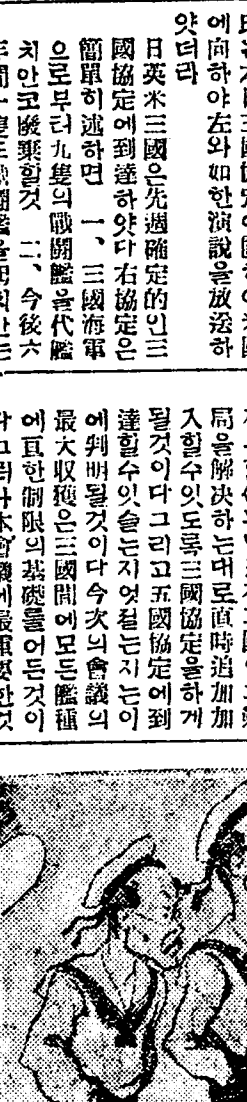 에向하야左와如한演說을放送하
얏더라
日英米三國은先週確定的인三
國協定에到達하얏다右協定은
簡單히述하면 一、三國海軍
으로부터九隻의戰鬪艦을代艦
치안코廢棄할것 二、今後六
年間一隻도戰鬪艦을
局을解決하는대로直時追加加
入할수잇도록三國協定을하게
될것이다그리고五國協定에到
達할수잇슬는지엇절는지는이
에判明될것이다今次의會議의
最大收穫은三國間에모든艦種
에亘한制限의基礎를어든것이
다그러나本會議에最重要한것